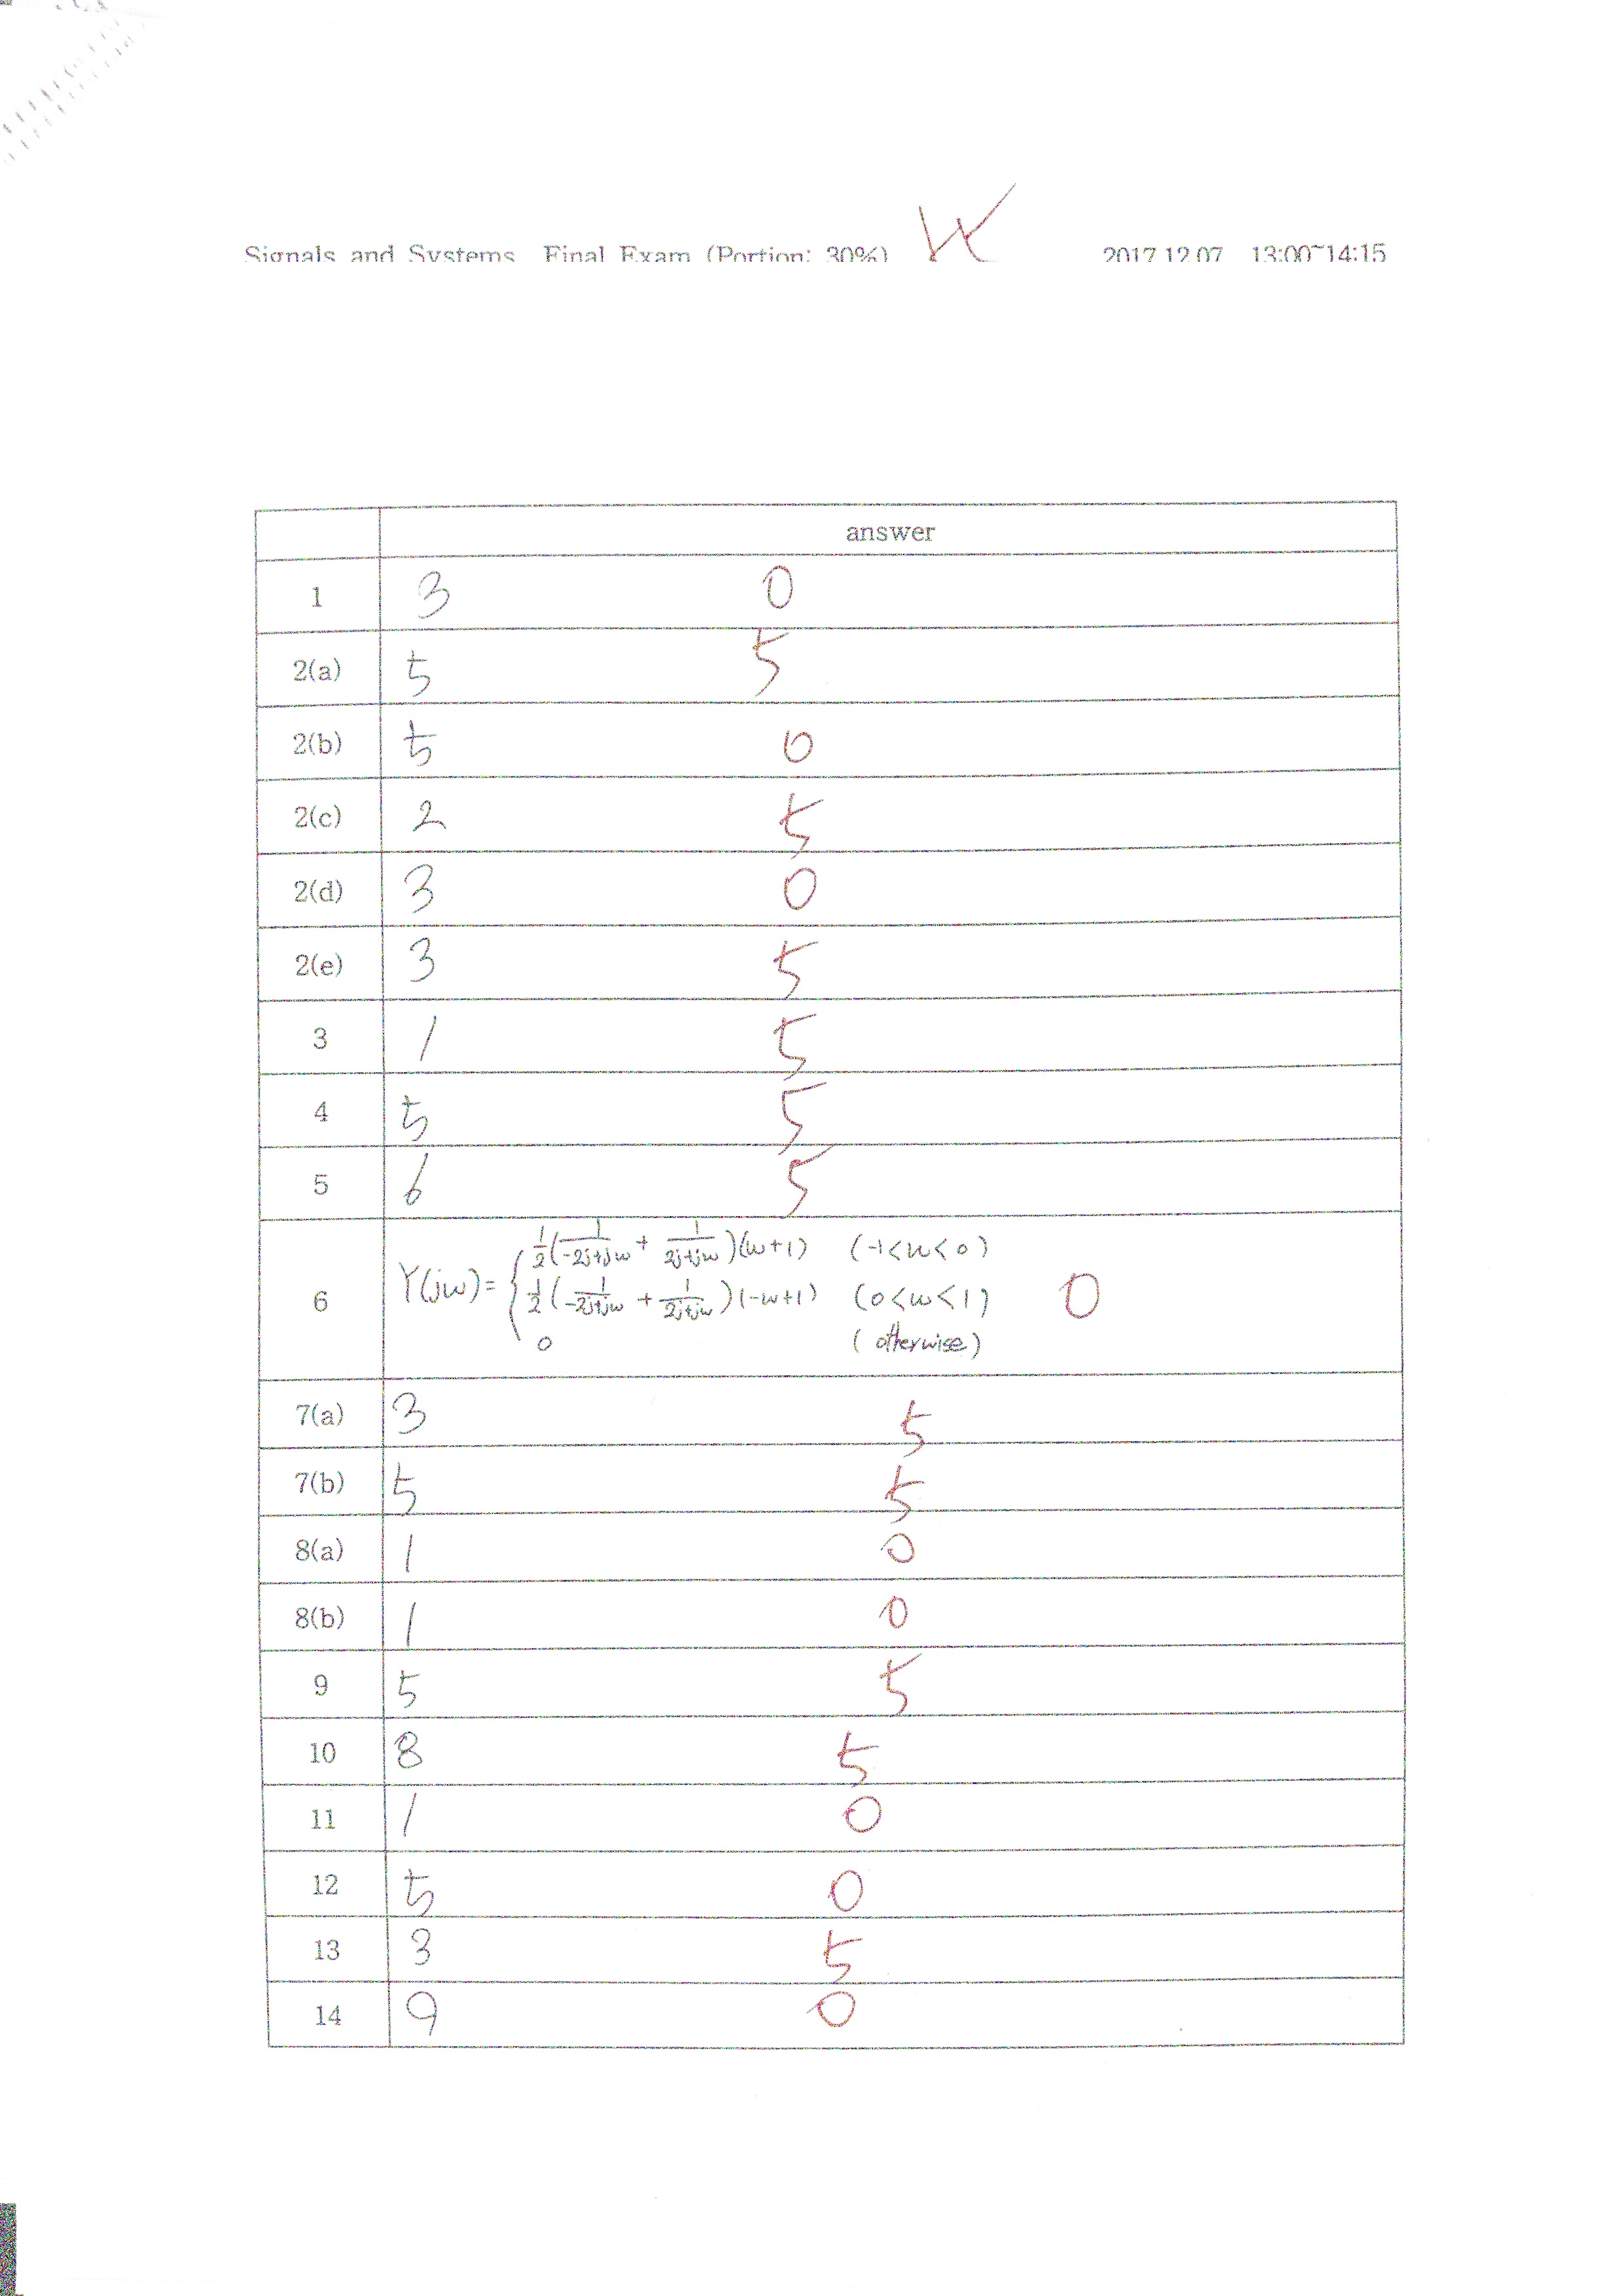 Signals and Systems Final Exam (Portion: 30%) 2017.12.07 13:00~14:15
answer
1 3 0
2(a) 5 5
2(b) 5 0
2(c) 2 5
2(d) 3 0
2(e) 3 5
3 1 5
4 5 5
5 6 5
6 Y(jw) = { 1/2(1/(-2j+jw) + 1/(2j+jw))(w+1) (-1<w<0)
1/2(1/(-2j+jw) + 1/(2j+jw))(-w+1) (0<w<1) 0
0 (otherwise)
7(a) 3 5
7(b) 5 5
8(a) 1 0
8(b) 1 0
9 5 5
10 8 5
11 1 0
12 5 0
13 3 5
14 9 0